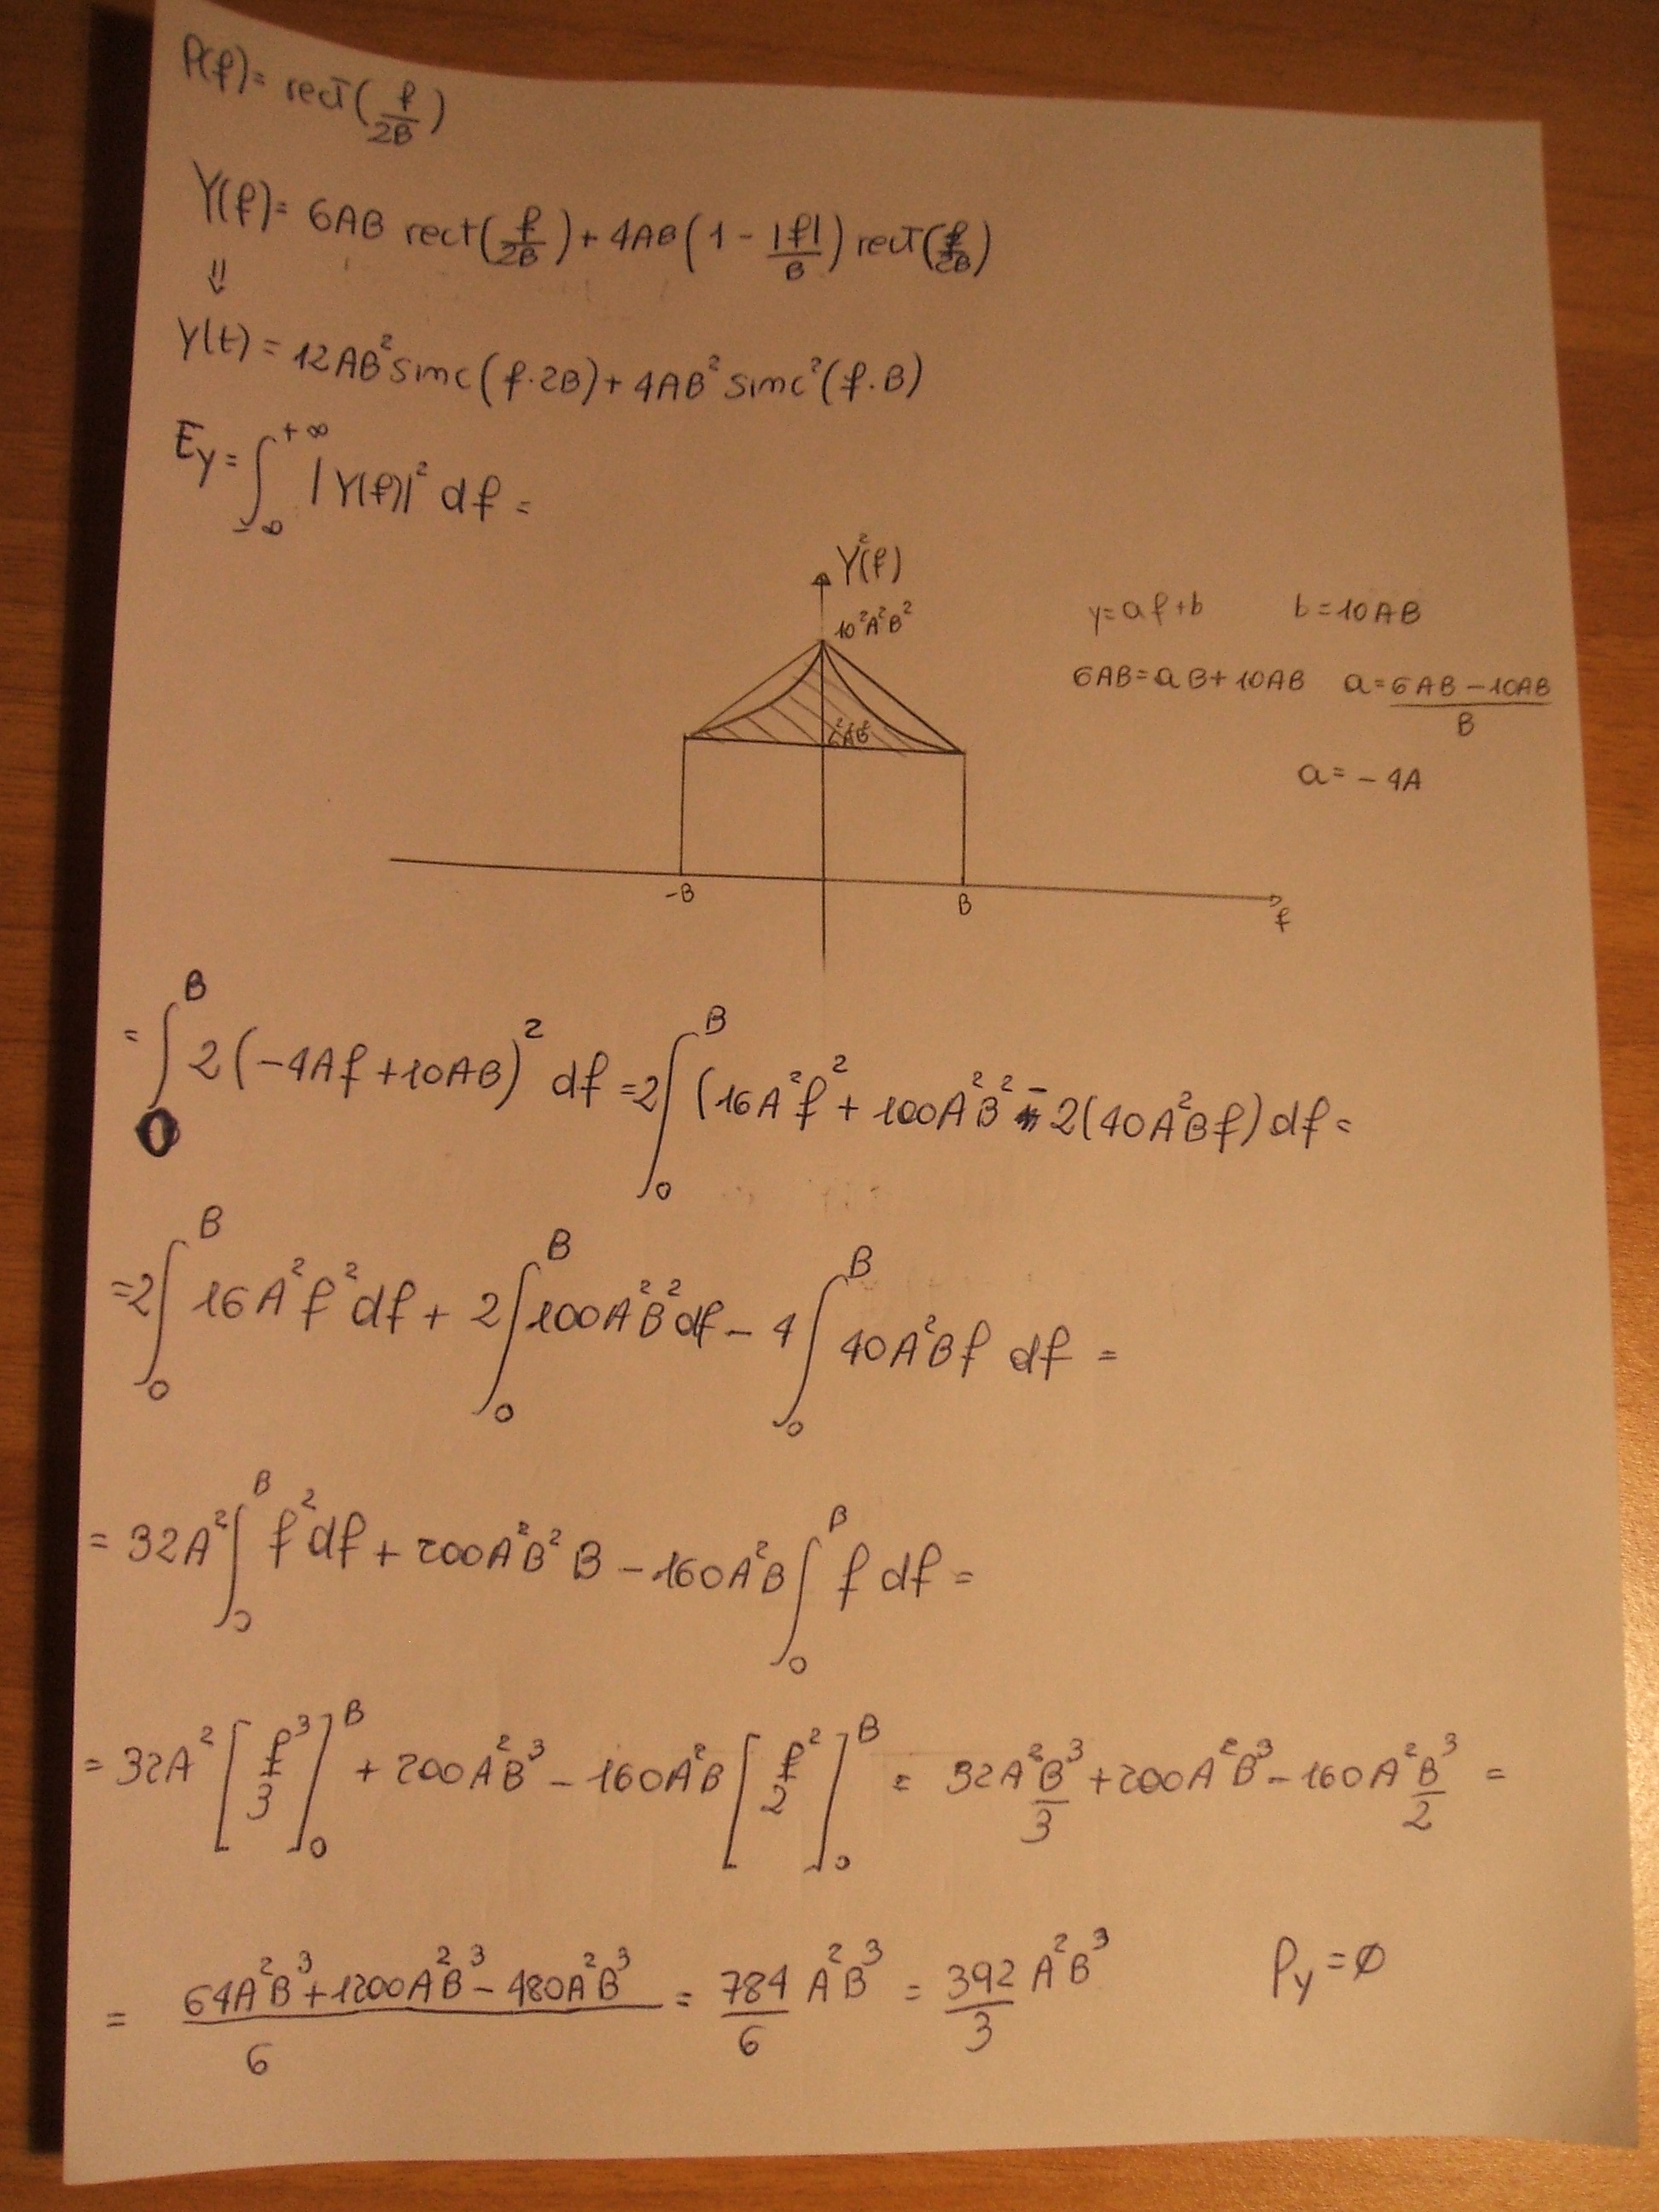 P(f)= rect(f/2B)
Y(f)= 6AB rect(f/2B)+ 4AB(1 - |f|/B) rect(f/2B)
⇓
Y(t) = 12AB² sinc(f·2B)+ 4AB² sinc²(f·B)
Ey= ∫_{-∞}^{+∞} |Y(f)|² df =
Y²(f)
10²A²B²
y=af+b b=10AB
6AB=aB+10AB a=(6AB-10AB)/B
6²A²B²
a= -4A
-B B f
= ∫_0^B 2(-4Af+10AB)² df =2∫_0^B (16A²f²+100A²B² - 2(40A²Bf) df =
=2∫_0^B 16A²f²df + 2∫_0^B 100A²B²df - 4∫_0^B 40A²Bf df =
= 32A²∫_0^B f²df + 200A²B² B - 160A²B∫_0^B f df =
= 32A²[f³/3]_0^B + 200A²B³ - 160A²B[f²/2]_0^B = 32A²B³/3 + 200A²B³ - 160A²B³/2 =
= (64A²B³+1200A²B³-480A²B³)/6 = 784/6 A²B³ = 392/3 A²B³ Py=∅